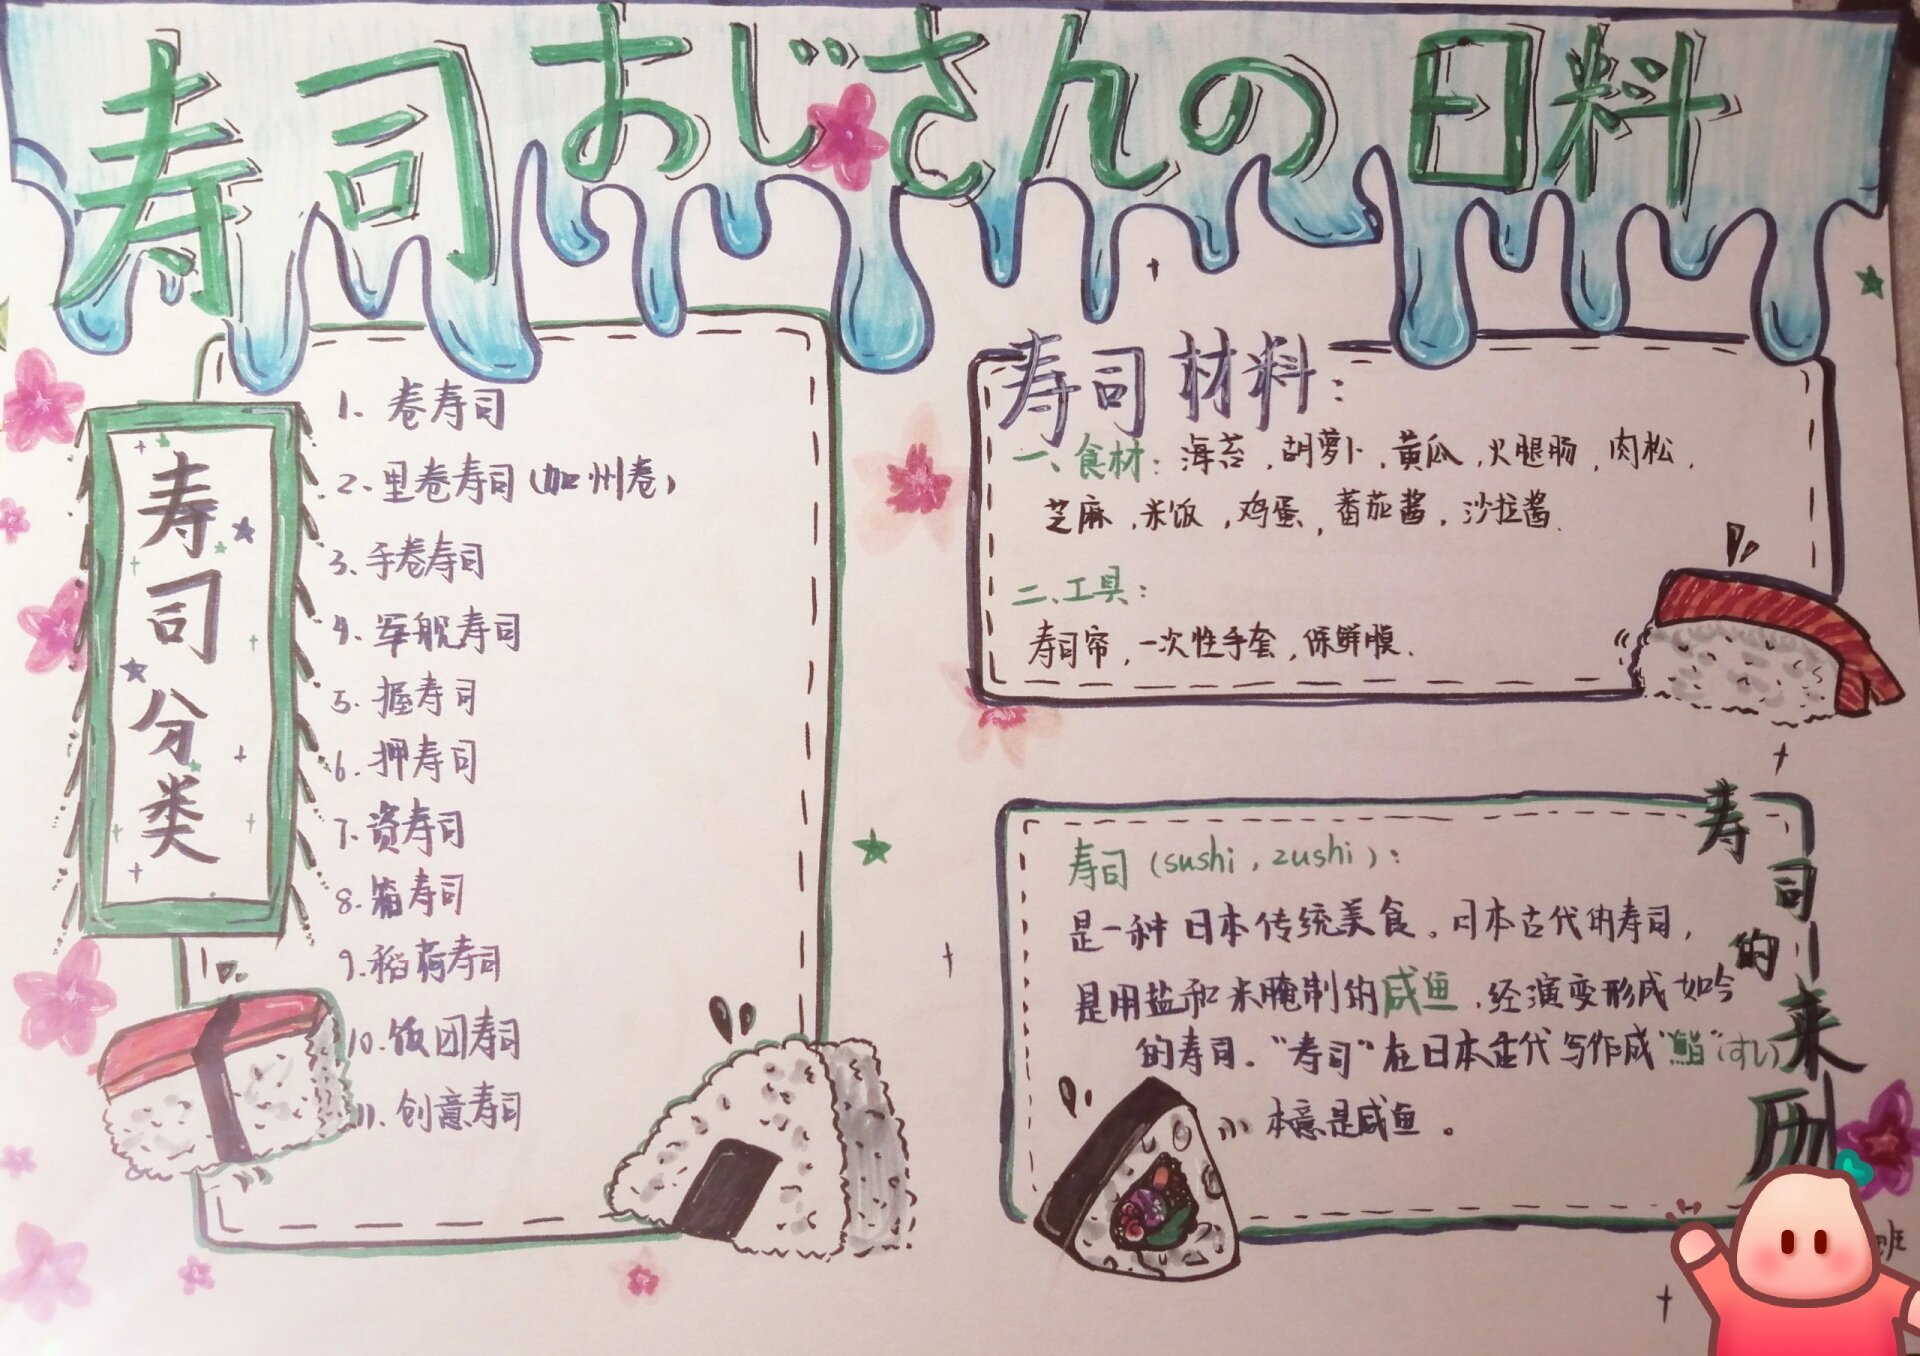 寿司おじさんの日料
寿司分类
1、卷寿司
2、里卷寿司(加州卷)
3、手卷寿司
4、军舰寿司
5、握寿司
6、押寿司
7、资寿司
8、箱寿司
9、稻荷寿司
10、饭团寿司
11、创意寿司
寿司材料:
一、食材:海苔,胡萝卜,黄瓜,火腿肠,肉松,
芝麻,米饭,鸡蛋,蕃茄酱,沙拉酱.
二、工具:
寿司帘,一次性手套,保鲜膜.
寿司的来历
寿司(sushi,zushi):
是一种日本传统美食。日本古代的寿司,
是用盐和米腌制的咸鱼,经演变形成如今
的寿司。“寿司”在日本古代写作成“鮨”(すし)
本意是咸鱼。
班